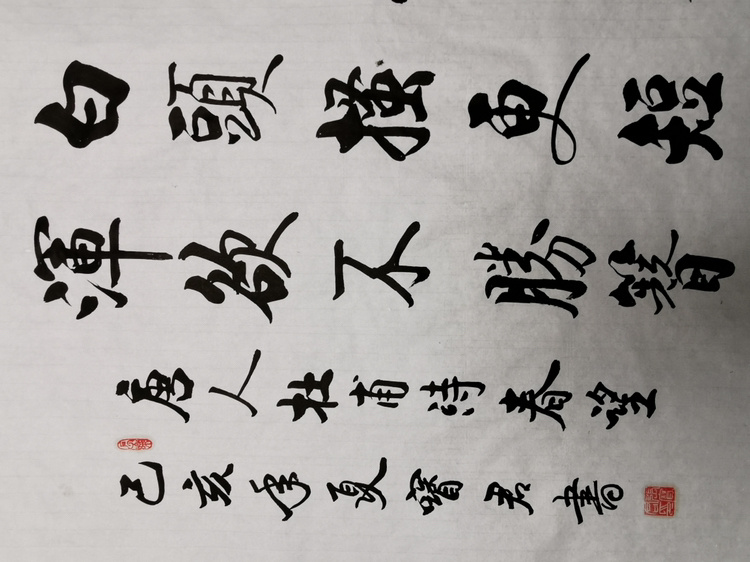 白頭搔更短
渾欲不勝簪
唐人杜甫詩春望
己亥年夏寶君書